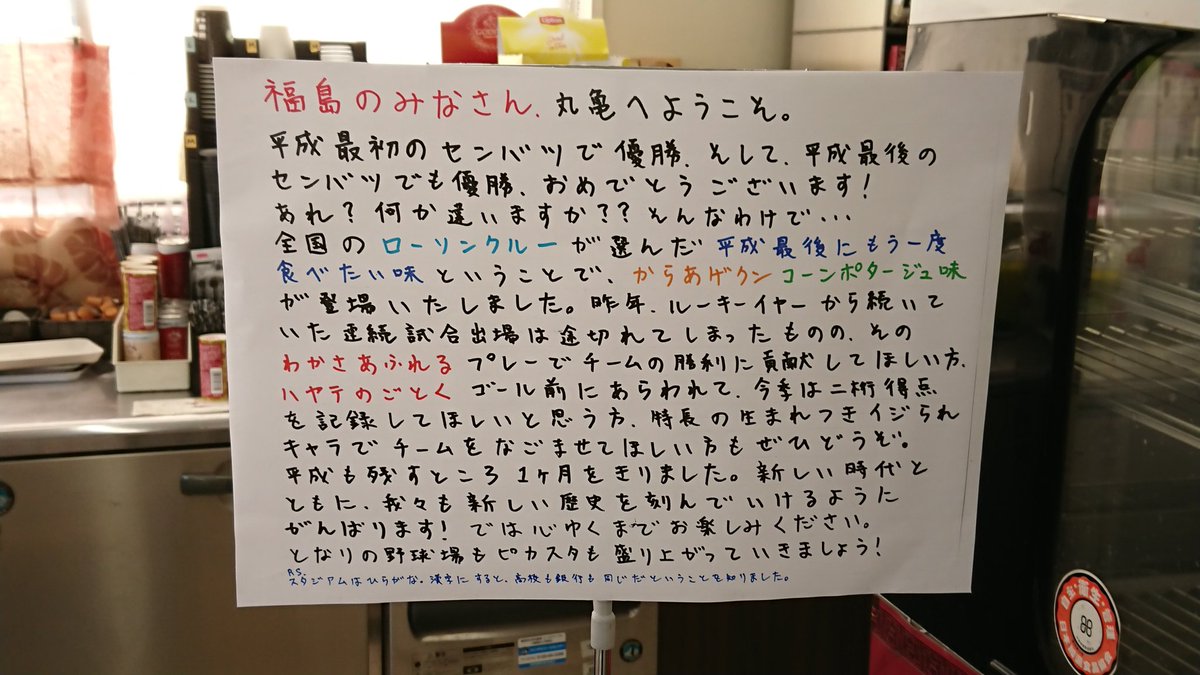 Lipton
福島のみなさん、丸亀へようこそ。
平成最初のセンバツで優勝、そして、平成最後の
センバツでも優勝、おめでとうございます!
あれ?何か違いますか??そんなわけで・・・
全国のローソンクルーが選んだ平成最後にもう一度
食べたい味ということで、からあげクンコーンポタージュ味
が登場いたしました。昨年、ルーキーイヤーから続いて
いた連続試合出場は途切れてしまったものの、その
わかさあふれるプレーでチームの勝利に貢献してほしい方、
ハヤテのごとくゴール前にあらわれて、今季は二桁得点
を記録してほしいと思う方、特長の生まれつきイジられ
キャラでチームをなごませてほしい方もぜひどうぞ。
平成も残すところ1ヶ月をきりました。新しい時代と
ともに、我々も新しい歴史を刻んでいけるように
がんばります!では心ゆくまでお楽しみください。
となりの野球場もピカスタも盛り上がっていきましょう!
P.S.
スタジアムはひらがな。漢字にすると、高校も銀行も同じだということを知りました。